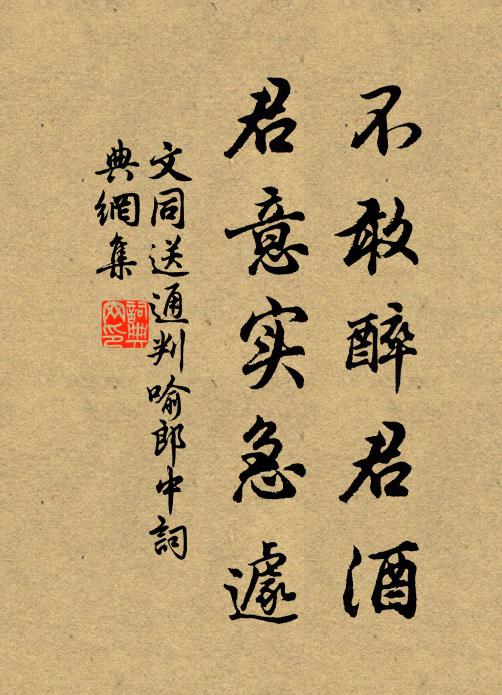 不敢醉君酒
君意实急遽
文同送通判喻郎中詞
典網集
詞典网印